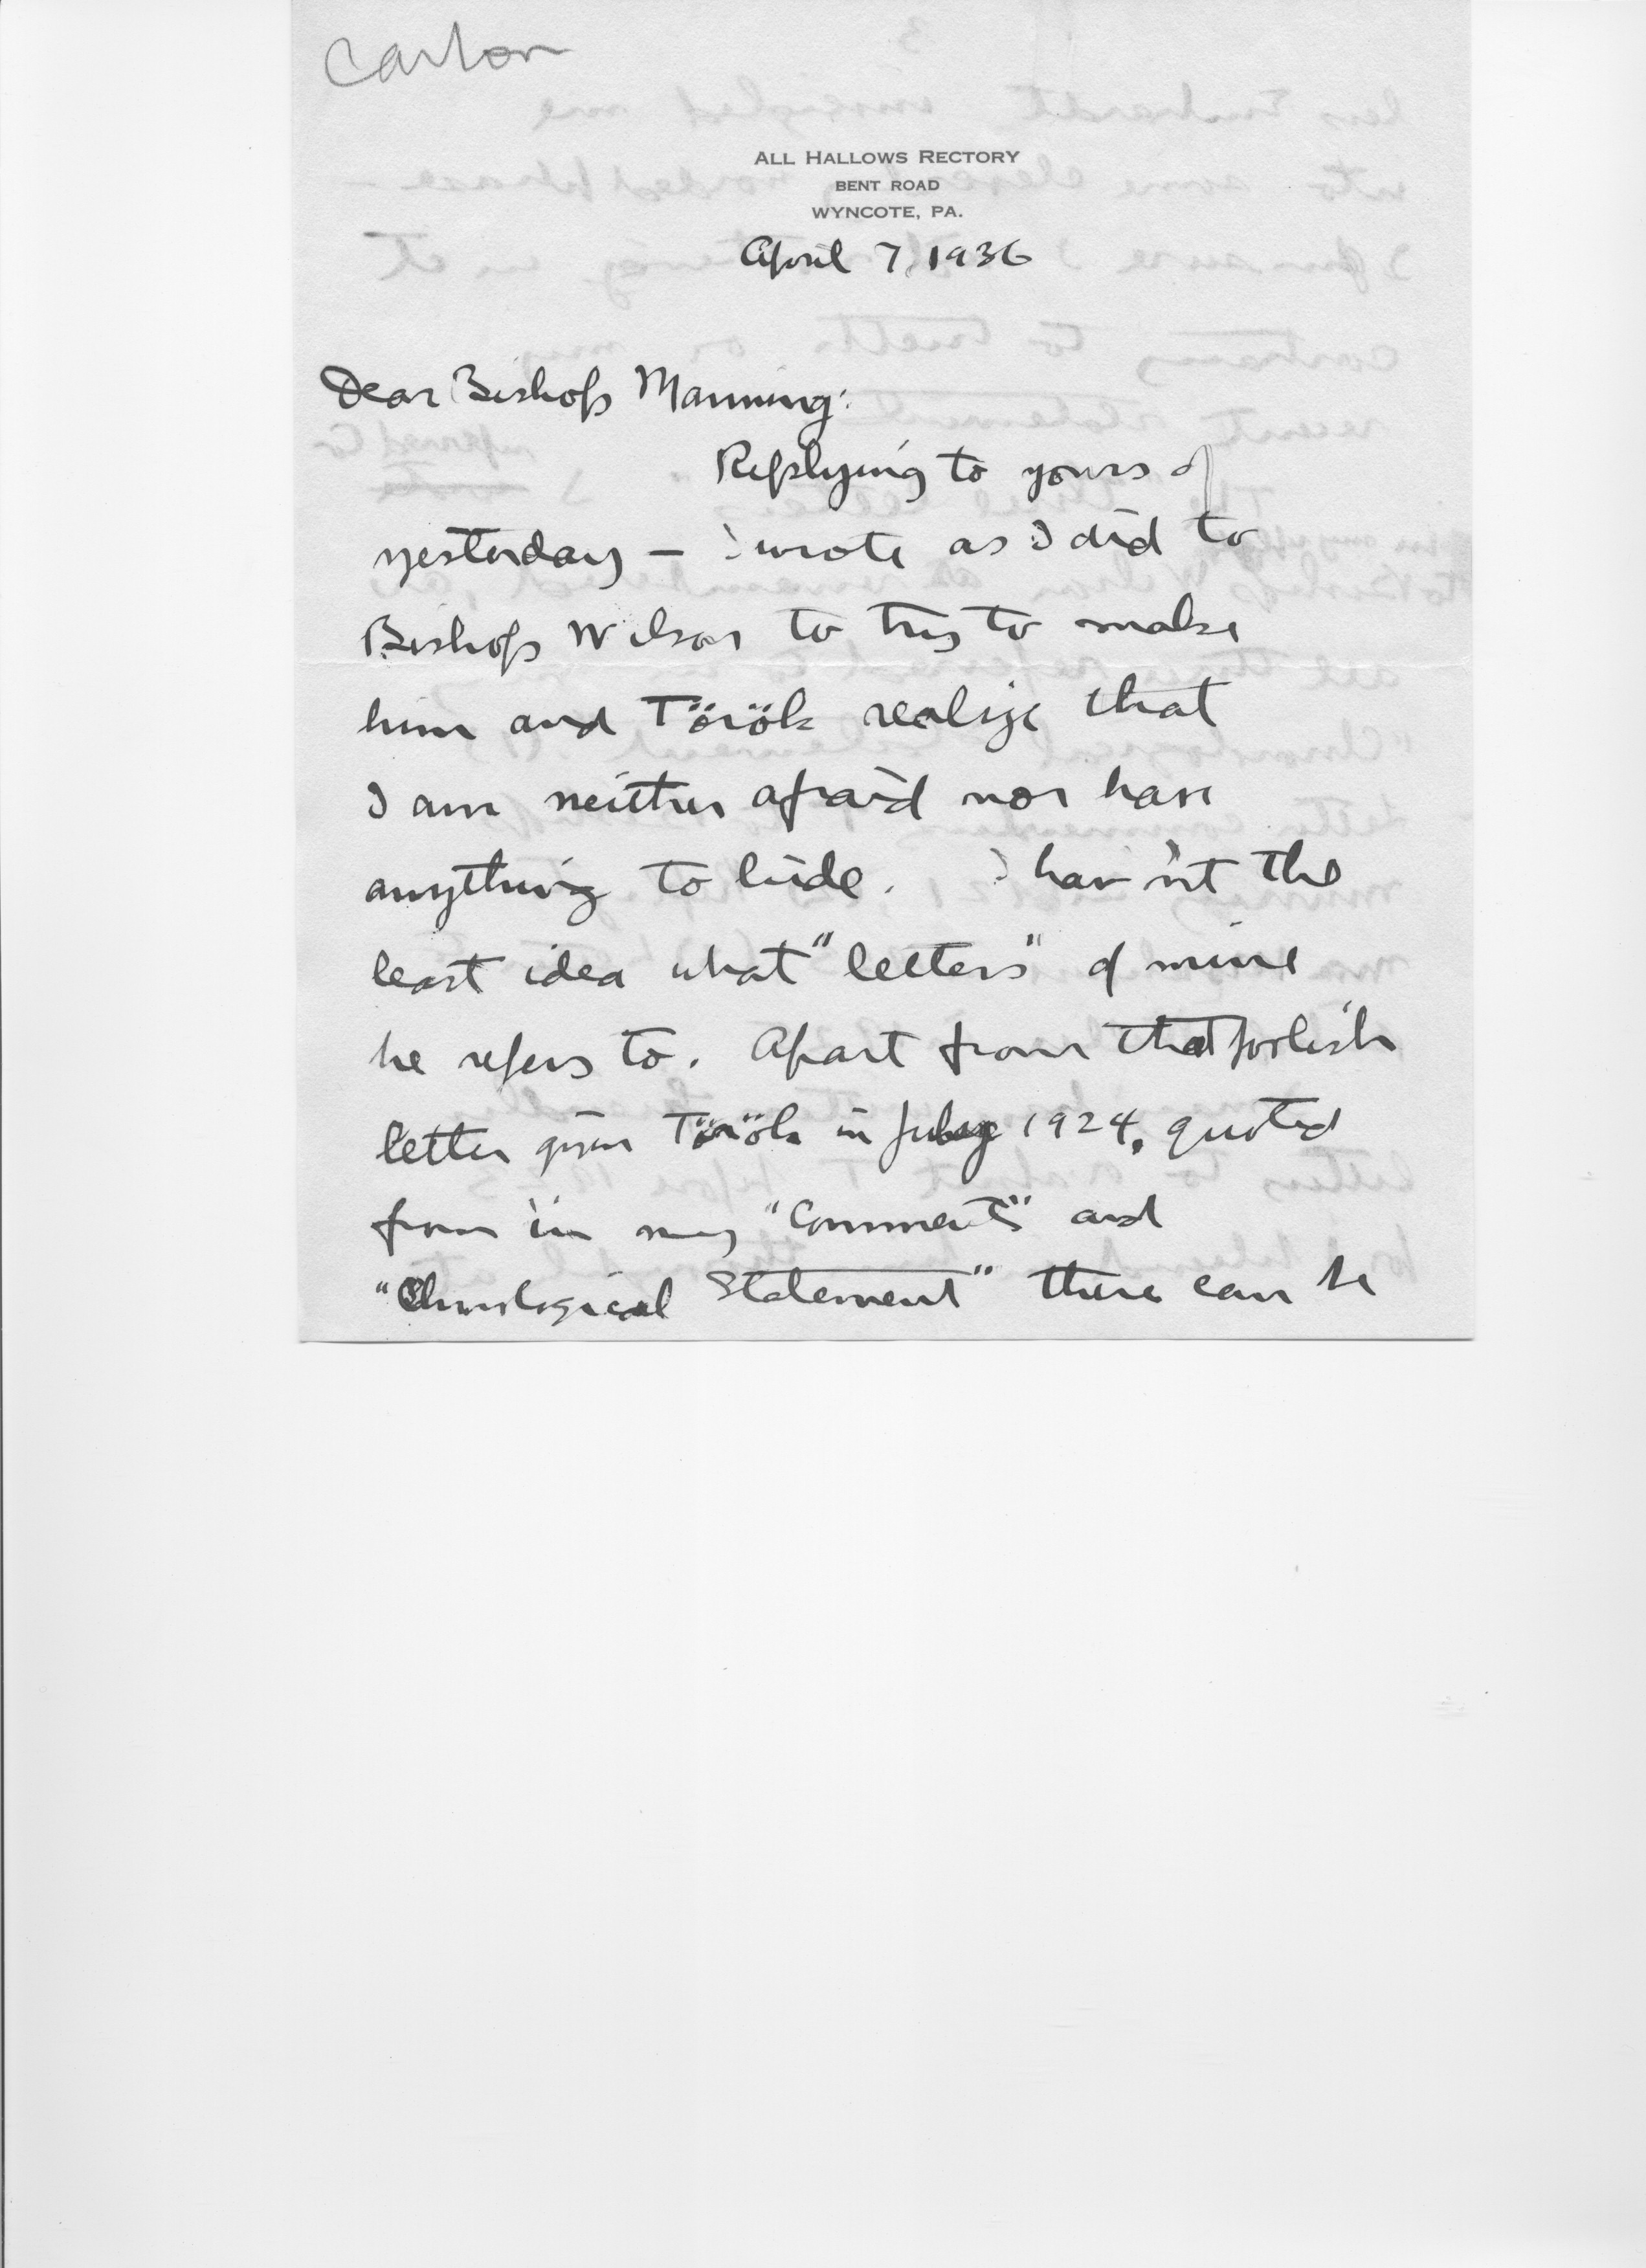 Carbon
ALL HALLOWS RECTORY
BENT ROAD
WYNCOTE, PA.
April 7, 1936
Dear Bishop Manning:
Replying to yours of
yesterday — I wrote as I did to
Bishop Wilson to try to make
him and Török realize that
I am neither afraid nor have
anything to hide. I hav'n't the
least idea what "letters" of mine
he refers to. Apart from that foolish
letter given Török in July 1924, quoted
from in my "Comments" and
"Chronological Statement" there can be